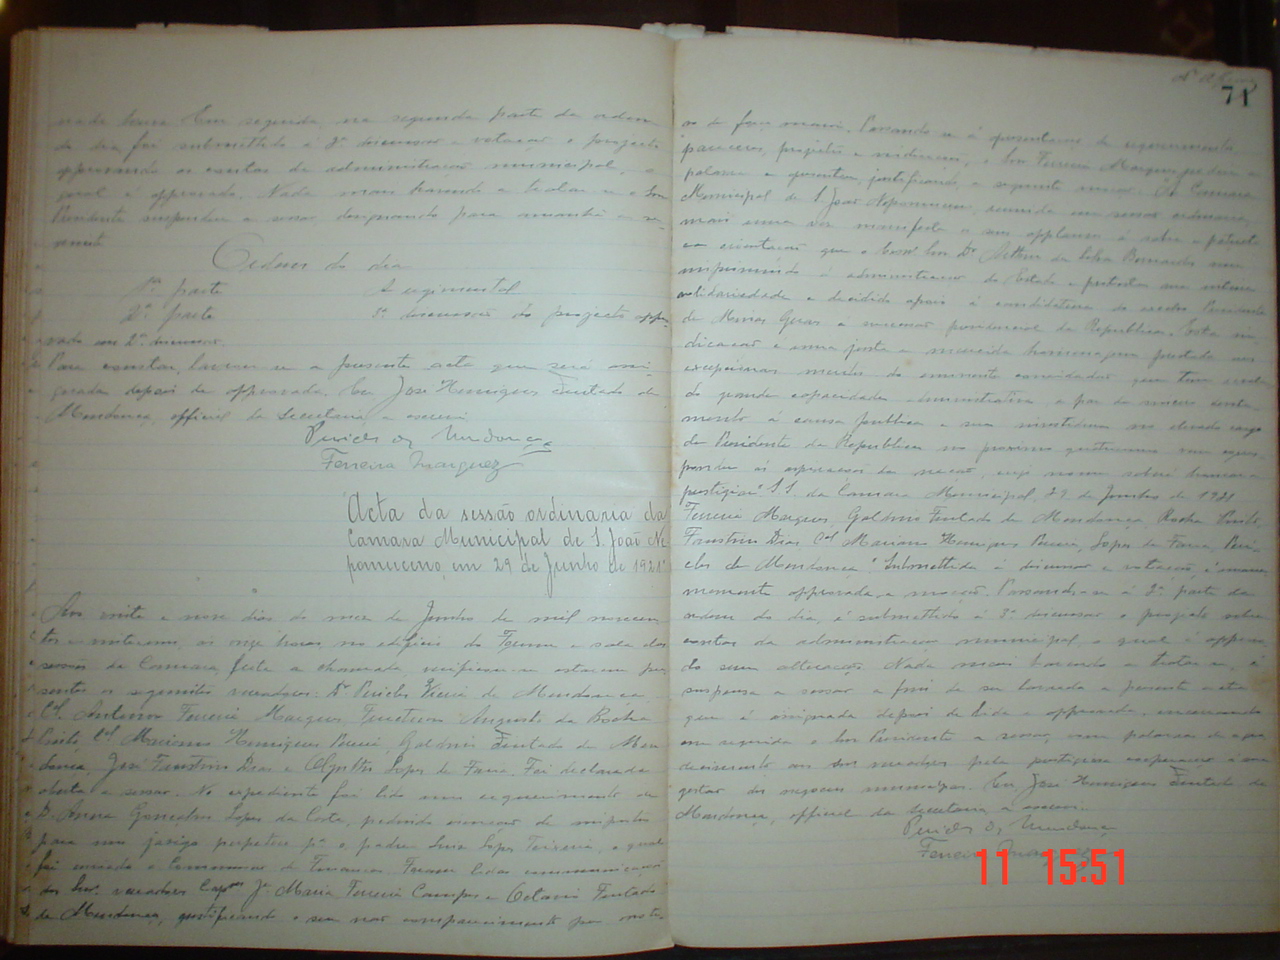 na de honra. Em seguida, na segunda parte da ordem
do dia, foi submettido á 2ª discussão e votação o projecto
approvando as contas da administração municipal, o
qual é approvado. Nada mais havendo a tratar-se o Snr
Presidente suspendeu a sessão, designando para amanhã a se-
guinte
Ordem do dia
1ª parte
A regimental
2ª parte
3ª discussão do projecto appro
vado em 2ª discussão.
Para constar, lavrou-se a presente acta que será assi
gnada depois de approvada. Eu José Henriques Furtado de
Mendonça, official da Secretaria, a escrevi.
Pericles de Mendonça
Ferreira Marques
Acta da sessão ordinaria da
Camara Municipal de S. João Ne
pomuceno, em 29 de Junho de 1921
Aos vinte e nove dias do mez de Junho de mil novecen
tos e vinte um, ás onze horas, no edificio do Forum e sala das
sessões da Camara, feita a chamada, verificou-se estarem pre
sentes os seguintes vereadores: Dr Pericles Vieira de Mendonça,
Cel. Antonio Ferreira Marques, Augusto da Rocha
Cel Mariano Henriques Pereira, Galdino Furtado de Men
donça, José Faustino Dias e Lopes de Faria. Foi declarada
aberta a sessão. No expediente foi lido um requerimento de
D. Anna Lopes da Costa, pedindo isenção de impostos
para um jazigo perpetuo pª o padre Lopes Teixeira, o qual
foi enviado á Commissão de Finanças. Foram lidas communicações
dos Snrs. vereadores Jº Maria Ferreira Campos e Octavio Furtado
de Mendonça, justificando o seu não comparecimento por
71
so de força maior. Passando-se á apresentação de requerimentos,
pareceres, projectos e indicações, o Snr Ferreira Marques pediu a
palavra e apresentou, justificando, a seguinte moção. "A Camara
Municipal de S. João Nepomuceno, reunida em sessão ordinaria,
mais uma vez manifesta o seu applauso á sabia e patrioti
ca orientação que o Exmº Snr Dr Arthur da Silva Bernardes vem
imprimindo á administração do Estado e protesta sua inteira
solidariedade e decidido apoio á candidatura do Presidente
de Minas Geraes á successão presidencial da Republica. Esta in
dicação é uma justa e merecida homenagem prestada aos
meritos do eminente que tem revela
do grande capacidade administrativa, a par de
mento á causa publica e sua investidura no elevado cargo
de Presidente da Republica no proximo quatriennio vem corres
ponder ás aspirações da nação, cujo nome saberá honrar e
prestigiar. S.S. da Camara Municipal, 29 de Junho de 1921
Ferreira Marques, Galdino Furtado de Mendonça, Rocha
Faustino Dias, Cel Mariano Henriques Pereira, Lopes de Faria, Peri
cles de Mendonça". Submettida á discussão e votação, é unani
memente approvada a moção. Passando-se á 2ª parte da
ordem do dia, é submettido á 3ª discussão o projecto sobre
contas da administração municipal, o qual é approva
do sem alteração. Nada mais havendo a tratar-se, é
suspensa a sessão, a fim de ser lavrada a presente acta
que é assignada depois de lida e approvada, encerrando
em seguida o Snr Presidente a sessão, com palavras de agra
decimento aos seus collegas pela cooperação á sua
gestão dos negocios municipaes. Eu, José Henriques Furtado de
Mendonça, official da Secretaria a escrevi.
Pericles de Mendonça
Ferreira Marques
11 15:51